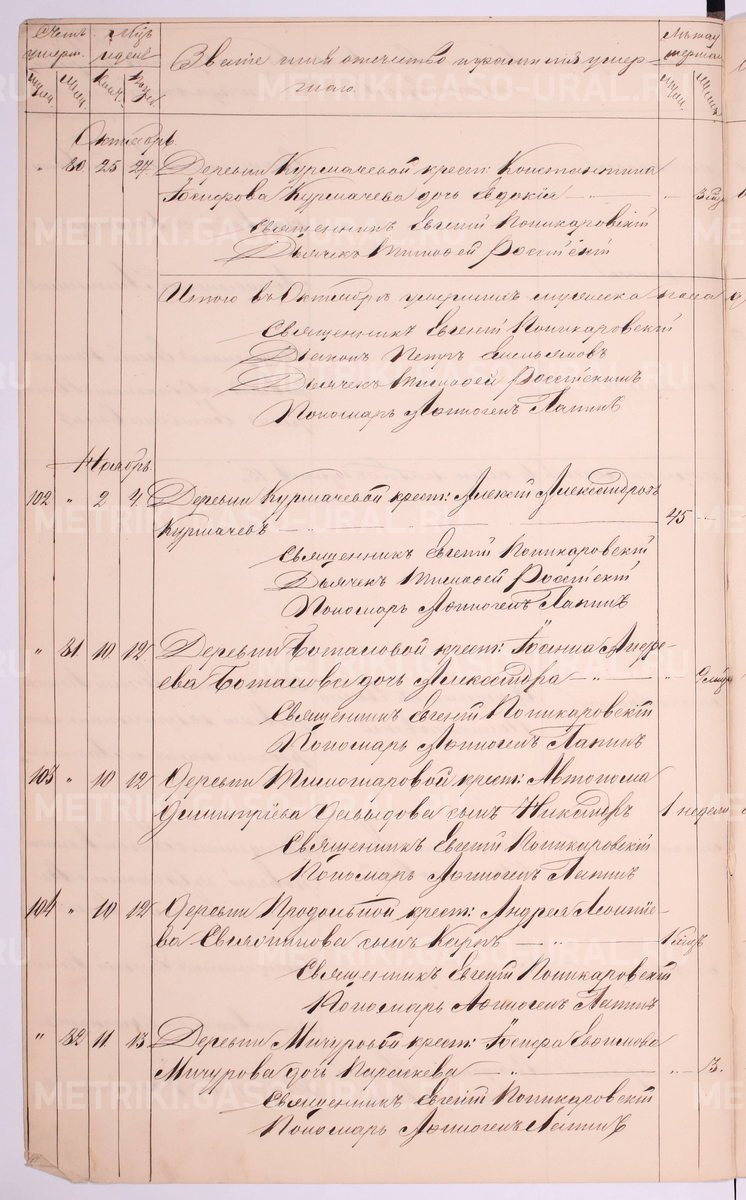 Счетъ умерш. Мѣс. и день Званіе имя отчество и фамилія умер- Лѣта умершаго
шаго.
Октябрь.
" 80 25 27 Деревни Курмачевой крест: Константина
Іосифова Курмачева дочь Евдокія — " — "
Священникъ Евгеній Поникаровскій
Дьячекъ Тимофей
Итого въ Октябрѣ умершихъ мужеска пола
Священникъ Евгеній Поникаровскій
Діаконъ Петръ
Дьячекъ Тимофей
Пономарь Аѳиногенъ Лапинъ
Ноябрь.
102 " 2 4 Деревни Курмачевой крест: Алексѣй Александровъ
Курмачевъ — " — 45 "
Священникъ Евгеній Поникаровскій
Дьячекъ Тимофей
Пономарь Аѳиногенъ Лапинъ
" 81 10 12 Деревни крест: Андре-
ева дочь Александра — " — "
Священникъ Евгеній Поникаровскій
Пономарь Аѳиногенъ Лапинъ
103 " 10 12 Деревни крест: Автонома
Димитріева Давыдова сынъ Никандръ 1 недели
Священникъ Евгеній Поникаровскій
Пономарь Аѳиногенъ Лапинъ
104 " 10 12 Деревни Продольной крест: Андрея Леонтіе-
ва сынъ Карпъ — " —
Священникъ Евгеній Поникаровскій
Пономарь Аѳиногенъ Лапинъ
" 82 11 13 Деревни Мичуровой крест: Іосифа Евфимова
Мичурова дочь Параскева — " — " 3.
Священникъ Евгеній Поникаровскій
Пономарь Аѳиногенъ Лапинъ
METRIKI.GASO-URAL.RU